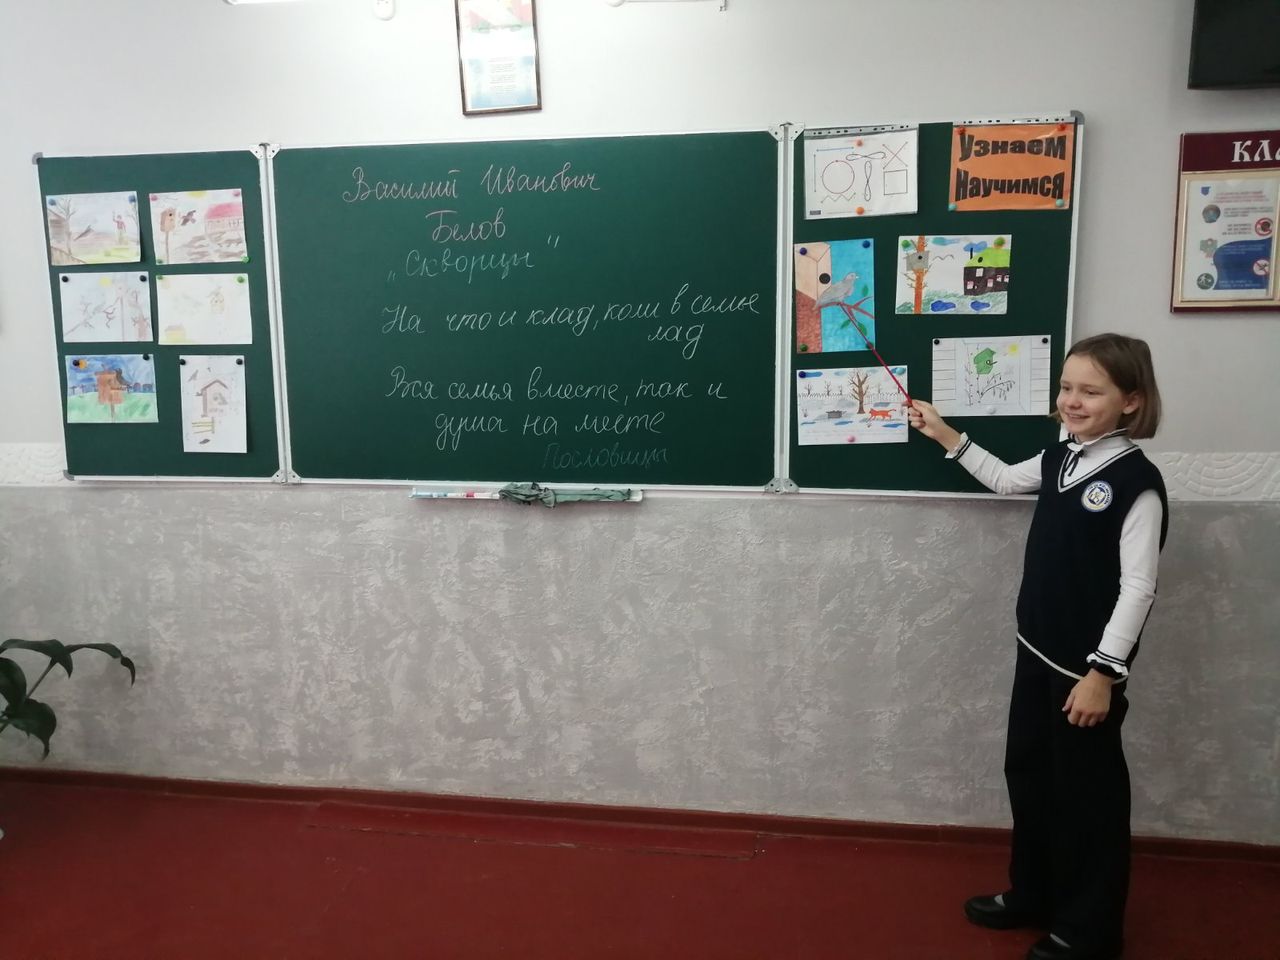 Василий Иванович
Белов
„Скворцы"
На что и клад, коли в семье
лад
Вся семья вместе, так и
душа на месте
Пословицы
Узнаем
Научимся